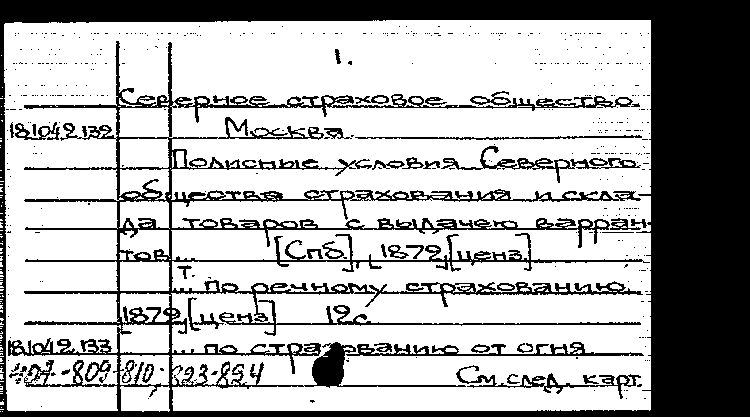 1.
Северное страховое общество.
18.1042.132 Москва.
Полисные условия Северного
общества страхования и скла-
да товаров с выдачею варран-
тов... [Спб.], [1879, [ценз.]
т.
... по речному страхованию.
[1879, [ценз] 12с.
18.1042.133 ... по страхованию от огня.
407-809-810; 823-824 См. след. карт.